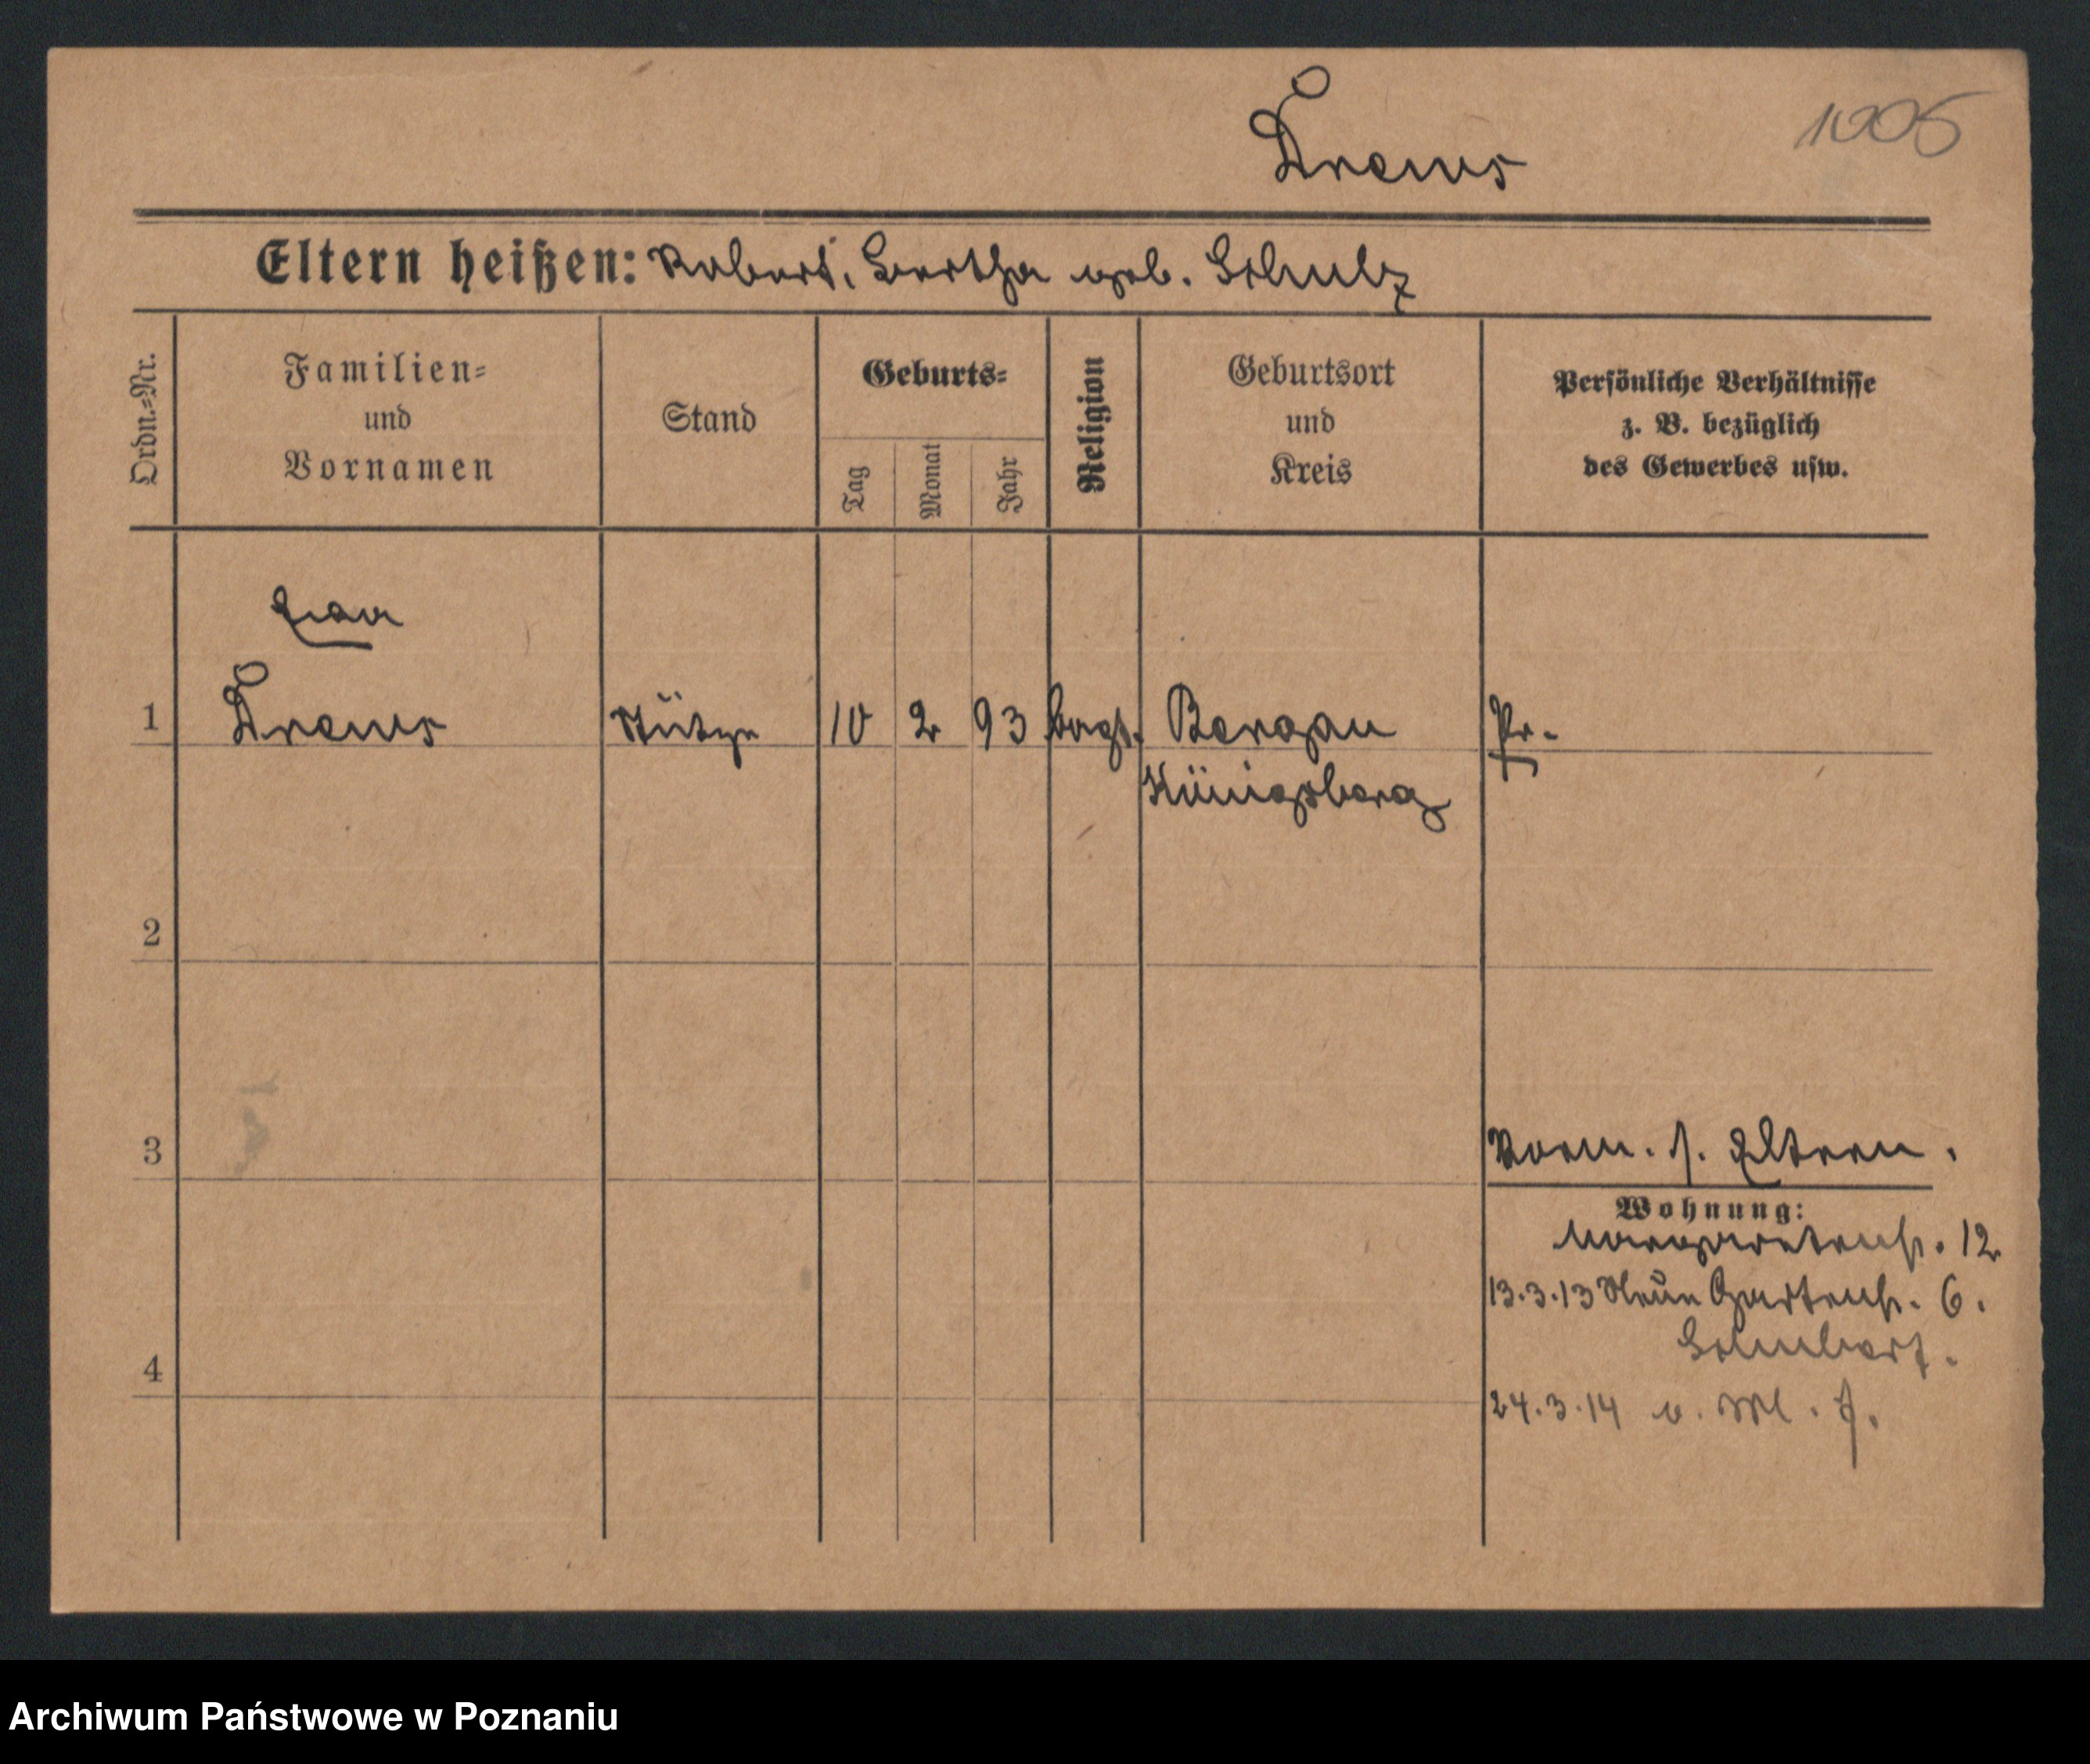 Drews
1005
Eltern heißen: Robert, Bertha geb. Schulz
Ordn.-Nr.
Familien-
und
Vornamen
Stand
Geburts-
Tag
Monat
Jahr
Religion
Geburtsort
und
Kreis
Persönliche Verhältnisse
z. B. bezüglich
des Gewerbes usw.
1 Drews Stütze 10 2 93 Bergau Pr.
Königsberg
2
3
Vorm. s. Eltern.
Wohnung:
Margaretenstr. 12
13.3.13 Neue Gartenstr. 6.
4
24.3.14 v.
Archiwum Państwowe w Poznaniu